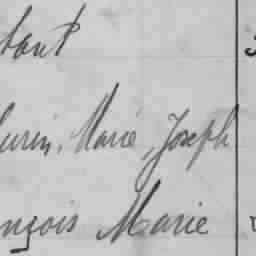 urin, Marie, Joseph
nçois Marie